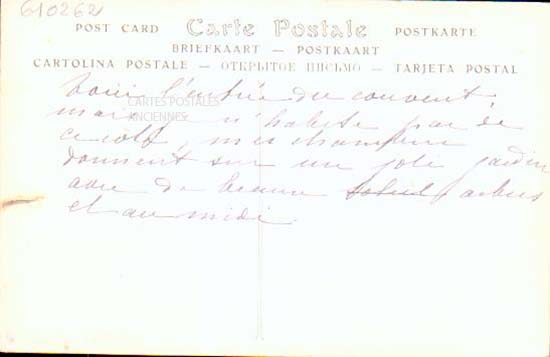 610262
POST CARD Carte Postale POSTKARTE
BRIEFKAART — POSTKAART
CARTOLINA POSTALE — ОТКРЫТОЕ ПИСЬМО — TARJETA POSTAL
CARTES POSTALES
ANCIENNES
Voici l'entrée du couvent
mais n'habite pas de
ce côté, mes chambres
donnent sur un joli jardin
avec de beaux arbres
et au midi